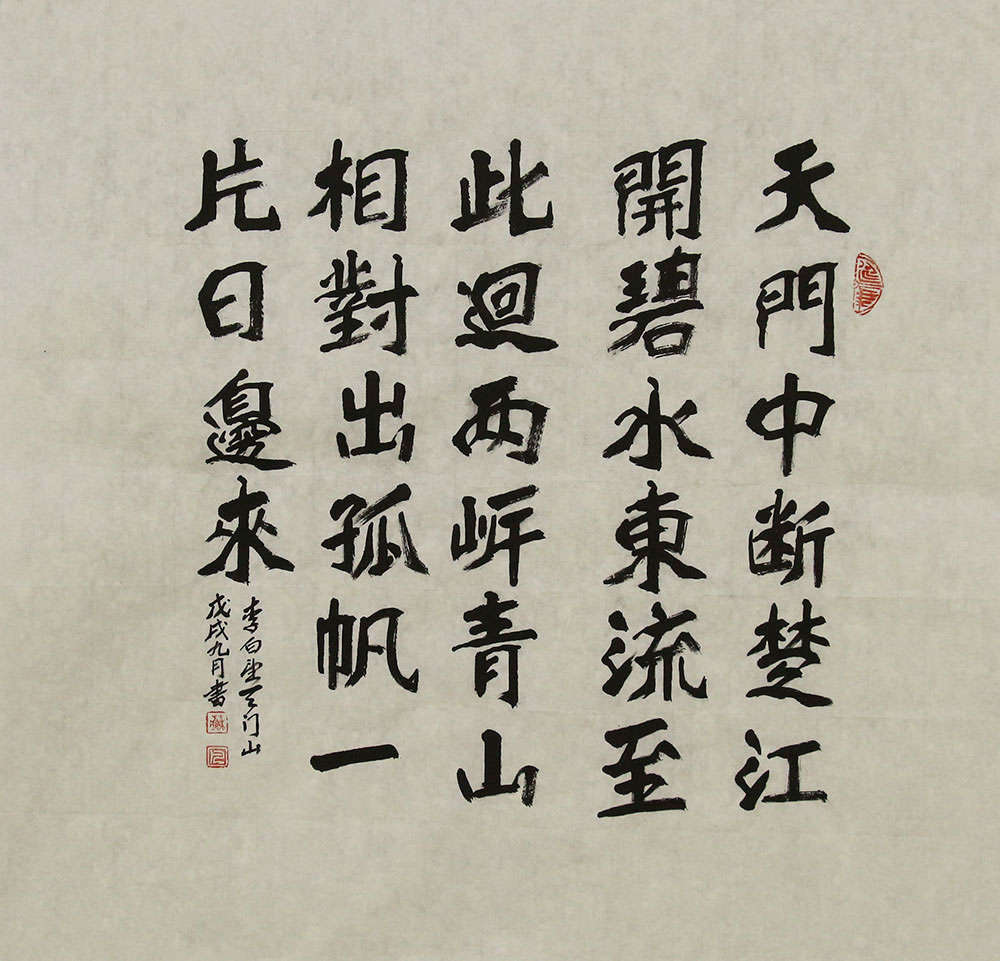 天門中断楚江
開碧水東流至
此迴两岸青山
相對出孤帆一
片日邊來
李白望天门山
戊戌九月書